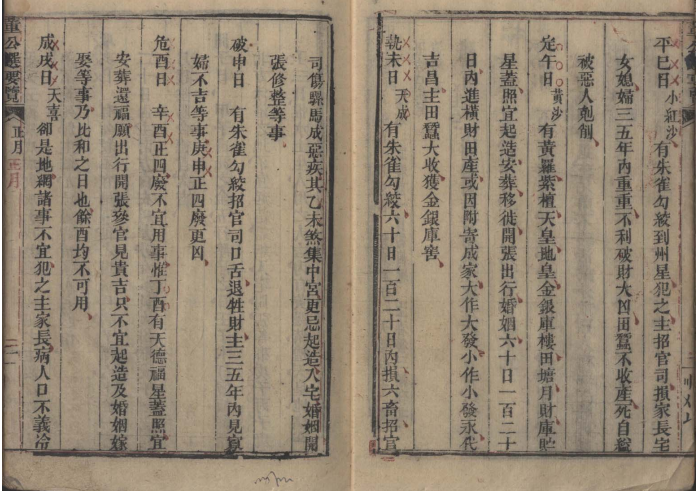 平巳日 小紅沙 有朱雀勾絞到州星犯之主招官司損家長宅
女媳婦三五年內重重不利破財大凶田蠶不收產死自縊
被惡人刦制
定午日 黃沙 有黃羅紫檀天皇地皇金銀庫樓田塘月財庫貯
星蓋照宜起造安葬移徙開張出行婚姻六十日一百二十
日內進橫財田產或因附寄成家大作大發小作小發永代
吉昌主田蠶大收獲金銀庫窖
執未日 天成 有朱雀勾絞六十日一百二十日內損六畜招官
司傷騾馬成惡疾其乙未煞集中宮更忌起造入宅婚姻開
張修整等事
破申日 有朱雀勾絞招官司口舌退牲財主三五年內見寡
婦不吉等事庚申正四廢更凶
危酉日 辛酉正四廢不宜用事惟丁酉有天德福星蓋照宜
安葬還福願出行開張參官見貴吉只不宜起造及婚姻嫁
娶等事乃比和之日也餘酉均不可用
成戌日 天喜 卻是地網諸事不宜犯之主家長病人口不義冷
董公選要覽 正月
正月